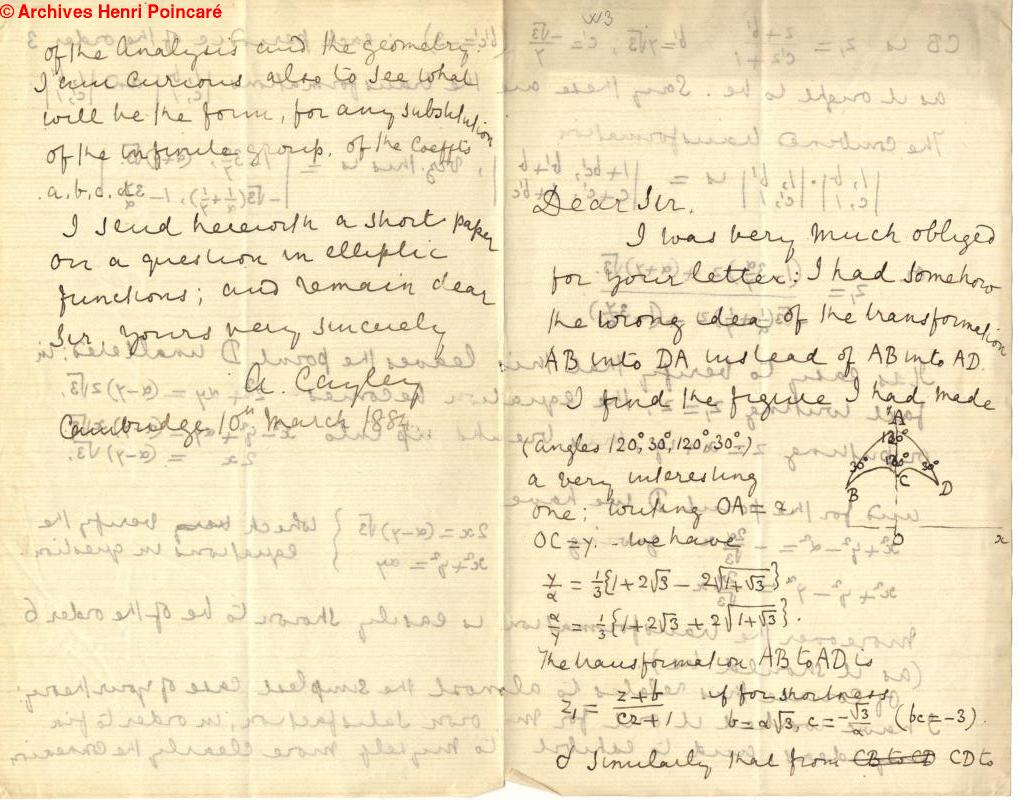 © Archives Henri Poincaré
of the Analysis and the geometry.
I am curious also to see what
will be the form, for any substitution
of the infinite group, of the coeffts
a.b.c.d.
I send herewith a short paper
on a question in elliptic
functions; and remain dear
Sir yours very sincerely
A. Cayley
Cambridge, 10th March 1884
Dear Sir,
I was very much obliged
for your letter: I had somehow
the wrong idea of the transformation
AB into DA instead of AB into AD.
I find the figure I had made
(angles 120°, 30°, 120°, 30°)
a very interesting
one; writing OA = α
OC = γ. we have
γ/α = 1/3{1+2√3 − 2√(1+√3)}
α/γ = 1/3{1+2√3 + 2√(1+√3)}.
The transformation AB to AD is
z₁ = (z+b)/(cz+1) if for shortness
b = α√3, c = −√3/α (bc = −3).
& similarly that from CB to CD CD to
A
120°
30°
120°
30°
B
C
D
O
x